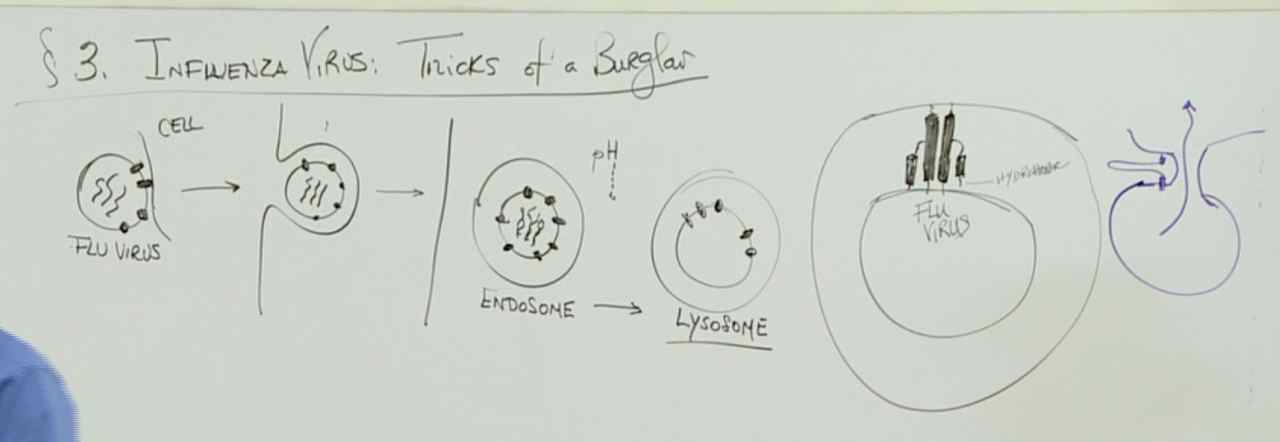 § 3. INFLUENZA VIRUS: Tricks of a Burglar
CELL
FLU VIRUS
pH
ENDOSOME
LYSOSOME
FLU
VIRUS